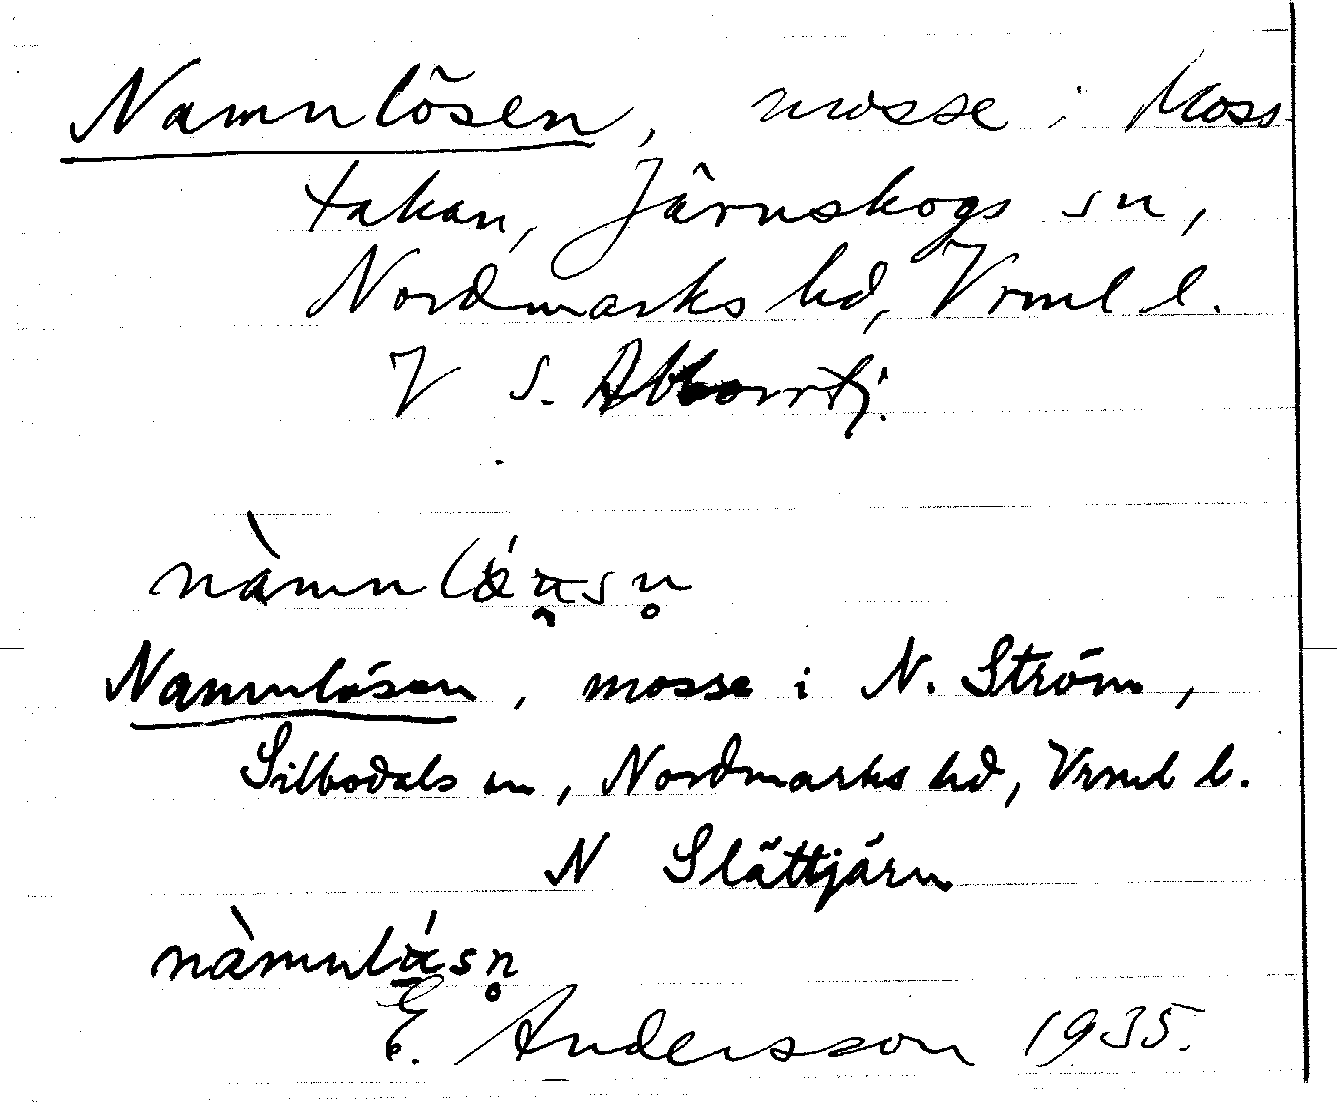 Namnlösen, mosse i Moss
takan, Järnskogs sn,
Nordmarks hd, Vrml l.
V S. Abborrtj.
Namnlösen, mosse i N. Ström,
Silbodals sn, Nordmarks hd, Vrml l.
N Slättjärn
E. Andersson 1935.